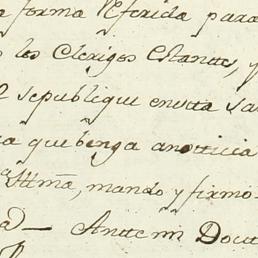 forma Referida para
los Clerigos Estantes, y
se publique en esta
que benga a noticia
Illmã, mando y firmo
Ante mi Doct